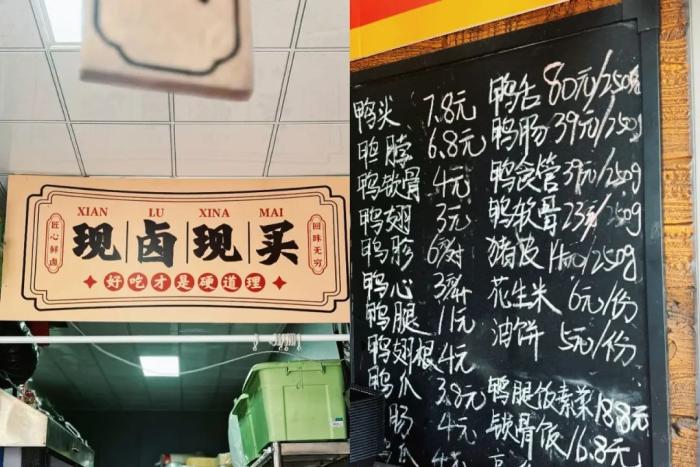 XIAN LU XINA MAI
匠心鲜卤
现卤现买
回味无穷
好吃才是硬道理
鸭尖 7.8元
鸭脖 6.8元
鸭锁骨 4元
鸭翅 3元
鸭胗
鸭心
鸭腿 11元
鸭翅根 4元
鸭爪 3.8元
肠 4元
4元
鸭舌 80元/250g
鸭肠 39元/250g
鸭食管 39元/250g
鸭软骨 23元/250g
猪皮 11元/250g
花生米 6元/份
油饼 5元/份
鸭腿饭素菜 18.8元
锁骨饭 16.8元